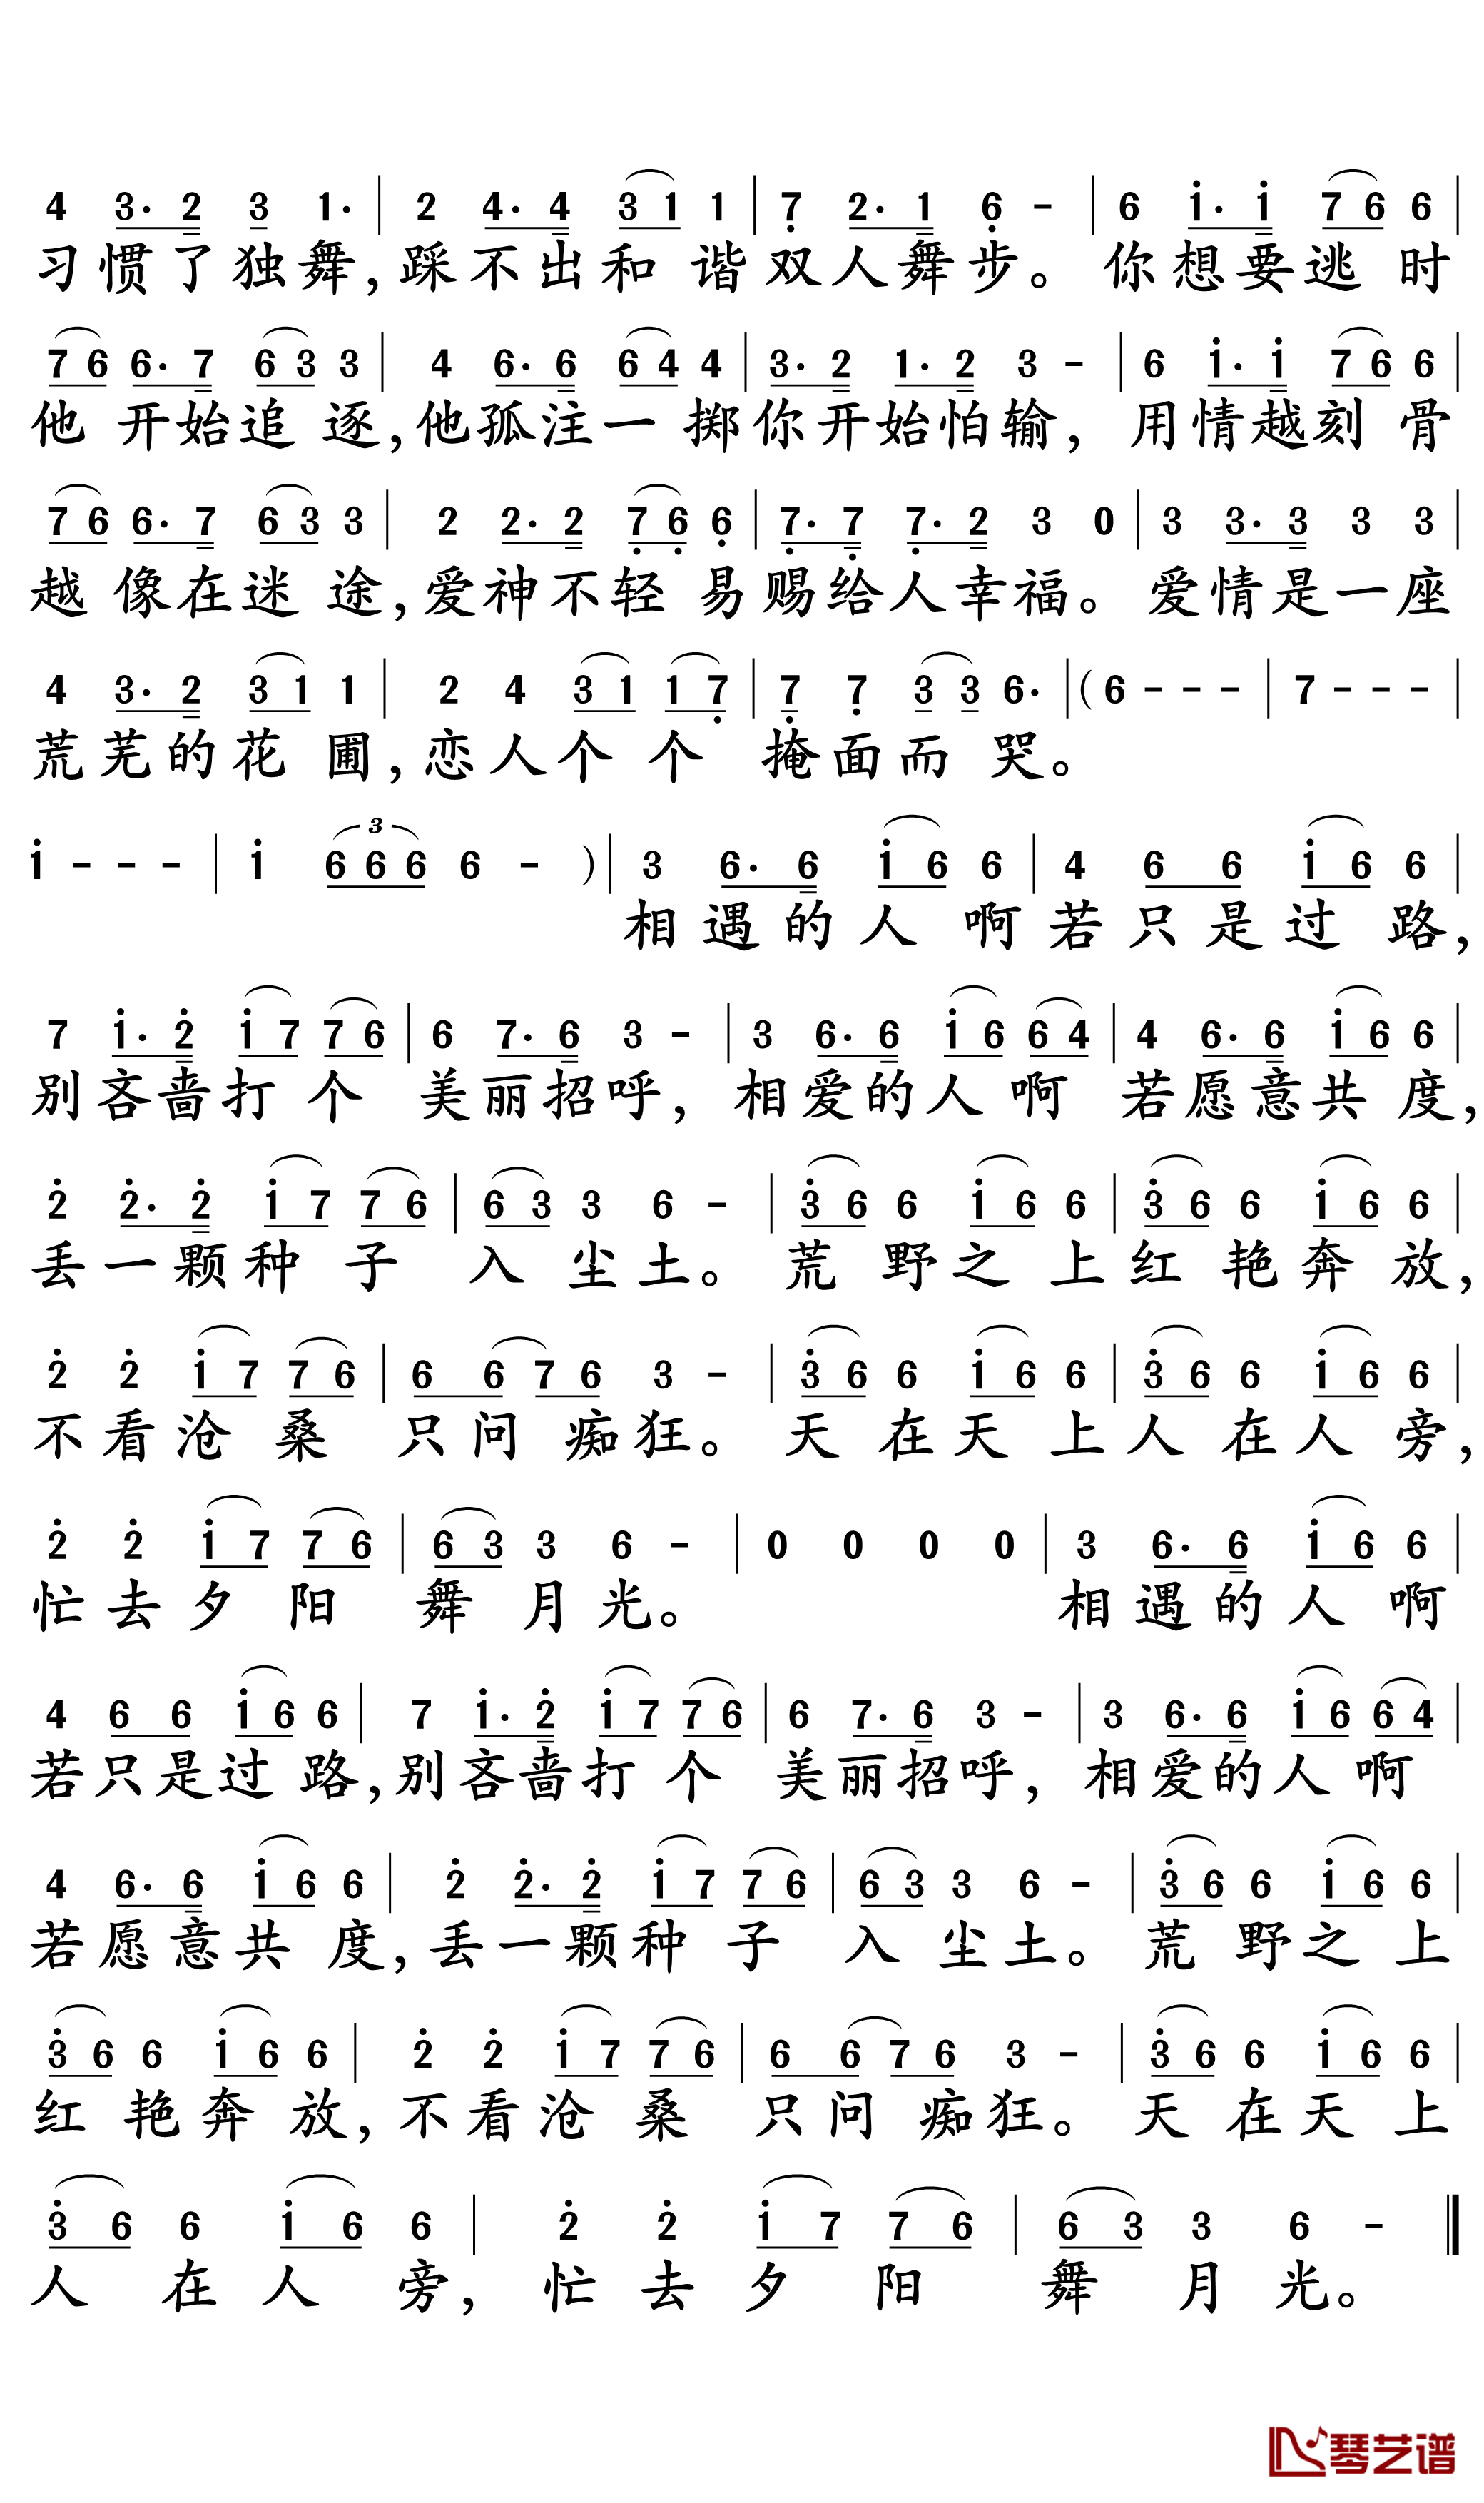 4 3· 2 3 1· | 2 4· 4 3 1 1 | 7 2· 1 6 - | 6 i· i 7 6 6 |
习惯了独舞,踩不出和谐双人舞步。你想要逃时
7 6 6· 7 6 3 3 | 4 6· 6 6 4 4 | 3· 2 1· 2 3 - | 6 i· i 7 6 6 |
他开始追逐,他孤注一掷你开始怕输,用情越刻骨
7 6 6· 7 6 3 3 | 2 2· 2 7 6 6 | 7· 7 7· 2 3 0 | 3 3· 3 3 3 |
越像在迷途,爱神不轻易赐给人幸福。爱情是一座
4 3· 2 3 1 1 | 2 4 3 1 1 7 | 7 7 3 3 6· | (6 - - - | 7 - - - |
荒芜的花圃,恋人个个掩面而哭。
i - - - | i 3 6 6 6 6 - ) | 3 6· 6 i 6 6 | 4 6 6 i 6 6 |
相遇的人啊若只是过路,
7 i· 2 i 7 7 6 | 6 7· 6 3 - | 3 6· 6 i 6 6 4 | 4 6· 6 i 6 6 |
别吝啬打个美丽招呼,相爱的人啊若愿意共度,
2 2· 2 i 7 7 6 | 6 3 3 6 - | 3 6 6 i 6 6 | 3 6 6 i 6 6 |
丢一颗种子入尘土。荒野之上红艳奔放,
2 2 i 7 7 6 | 6 6 7 6 3 - | 3 6 6 i 6 6 | 3 6 6 i 6 6 |
不看沧桑只问痴狂。天在天上人在人旁,
2 2 i 7 7 6 | 6 3 3 6 - | 0 0 0 0 | 3 6· 6 i 6 6 |
忙去夕阳舞月光。相遇的人啊
4 6 6 i 6 6 | 7 i· 2 i 7 7 6 | 6 7· 6 3 - | 3 6· 6 i 6 6 4 |
若只是过路,别吝啬打个美丽招呼,相爱的人啊
4 6· 6 i 6 6 | 2 2· 2 i 7 7 6 | 6 3 3 6 - | 3 6 6 i 6 6 |
若愿意共度,丢一颗种子入尘土。荒野之上
3 6 6 i 6 6 | 2 2 i 7 7 6 | 6 6 7 6 3 - | 3 6 6 i 6 6 |
红艳奔放,不看沧桑只问痴狂。天在天上
3 6 6 i 6 6 | 2 2 i 7 7 6 | 6 3 3 6 - ‖
人在人旁,忙去夕阳舞月光。
琴艺谱